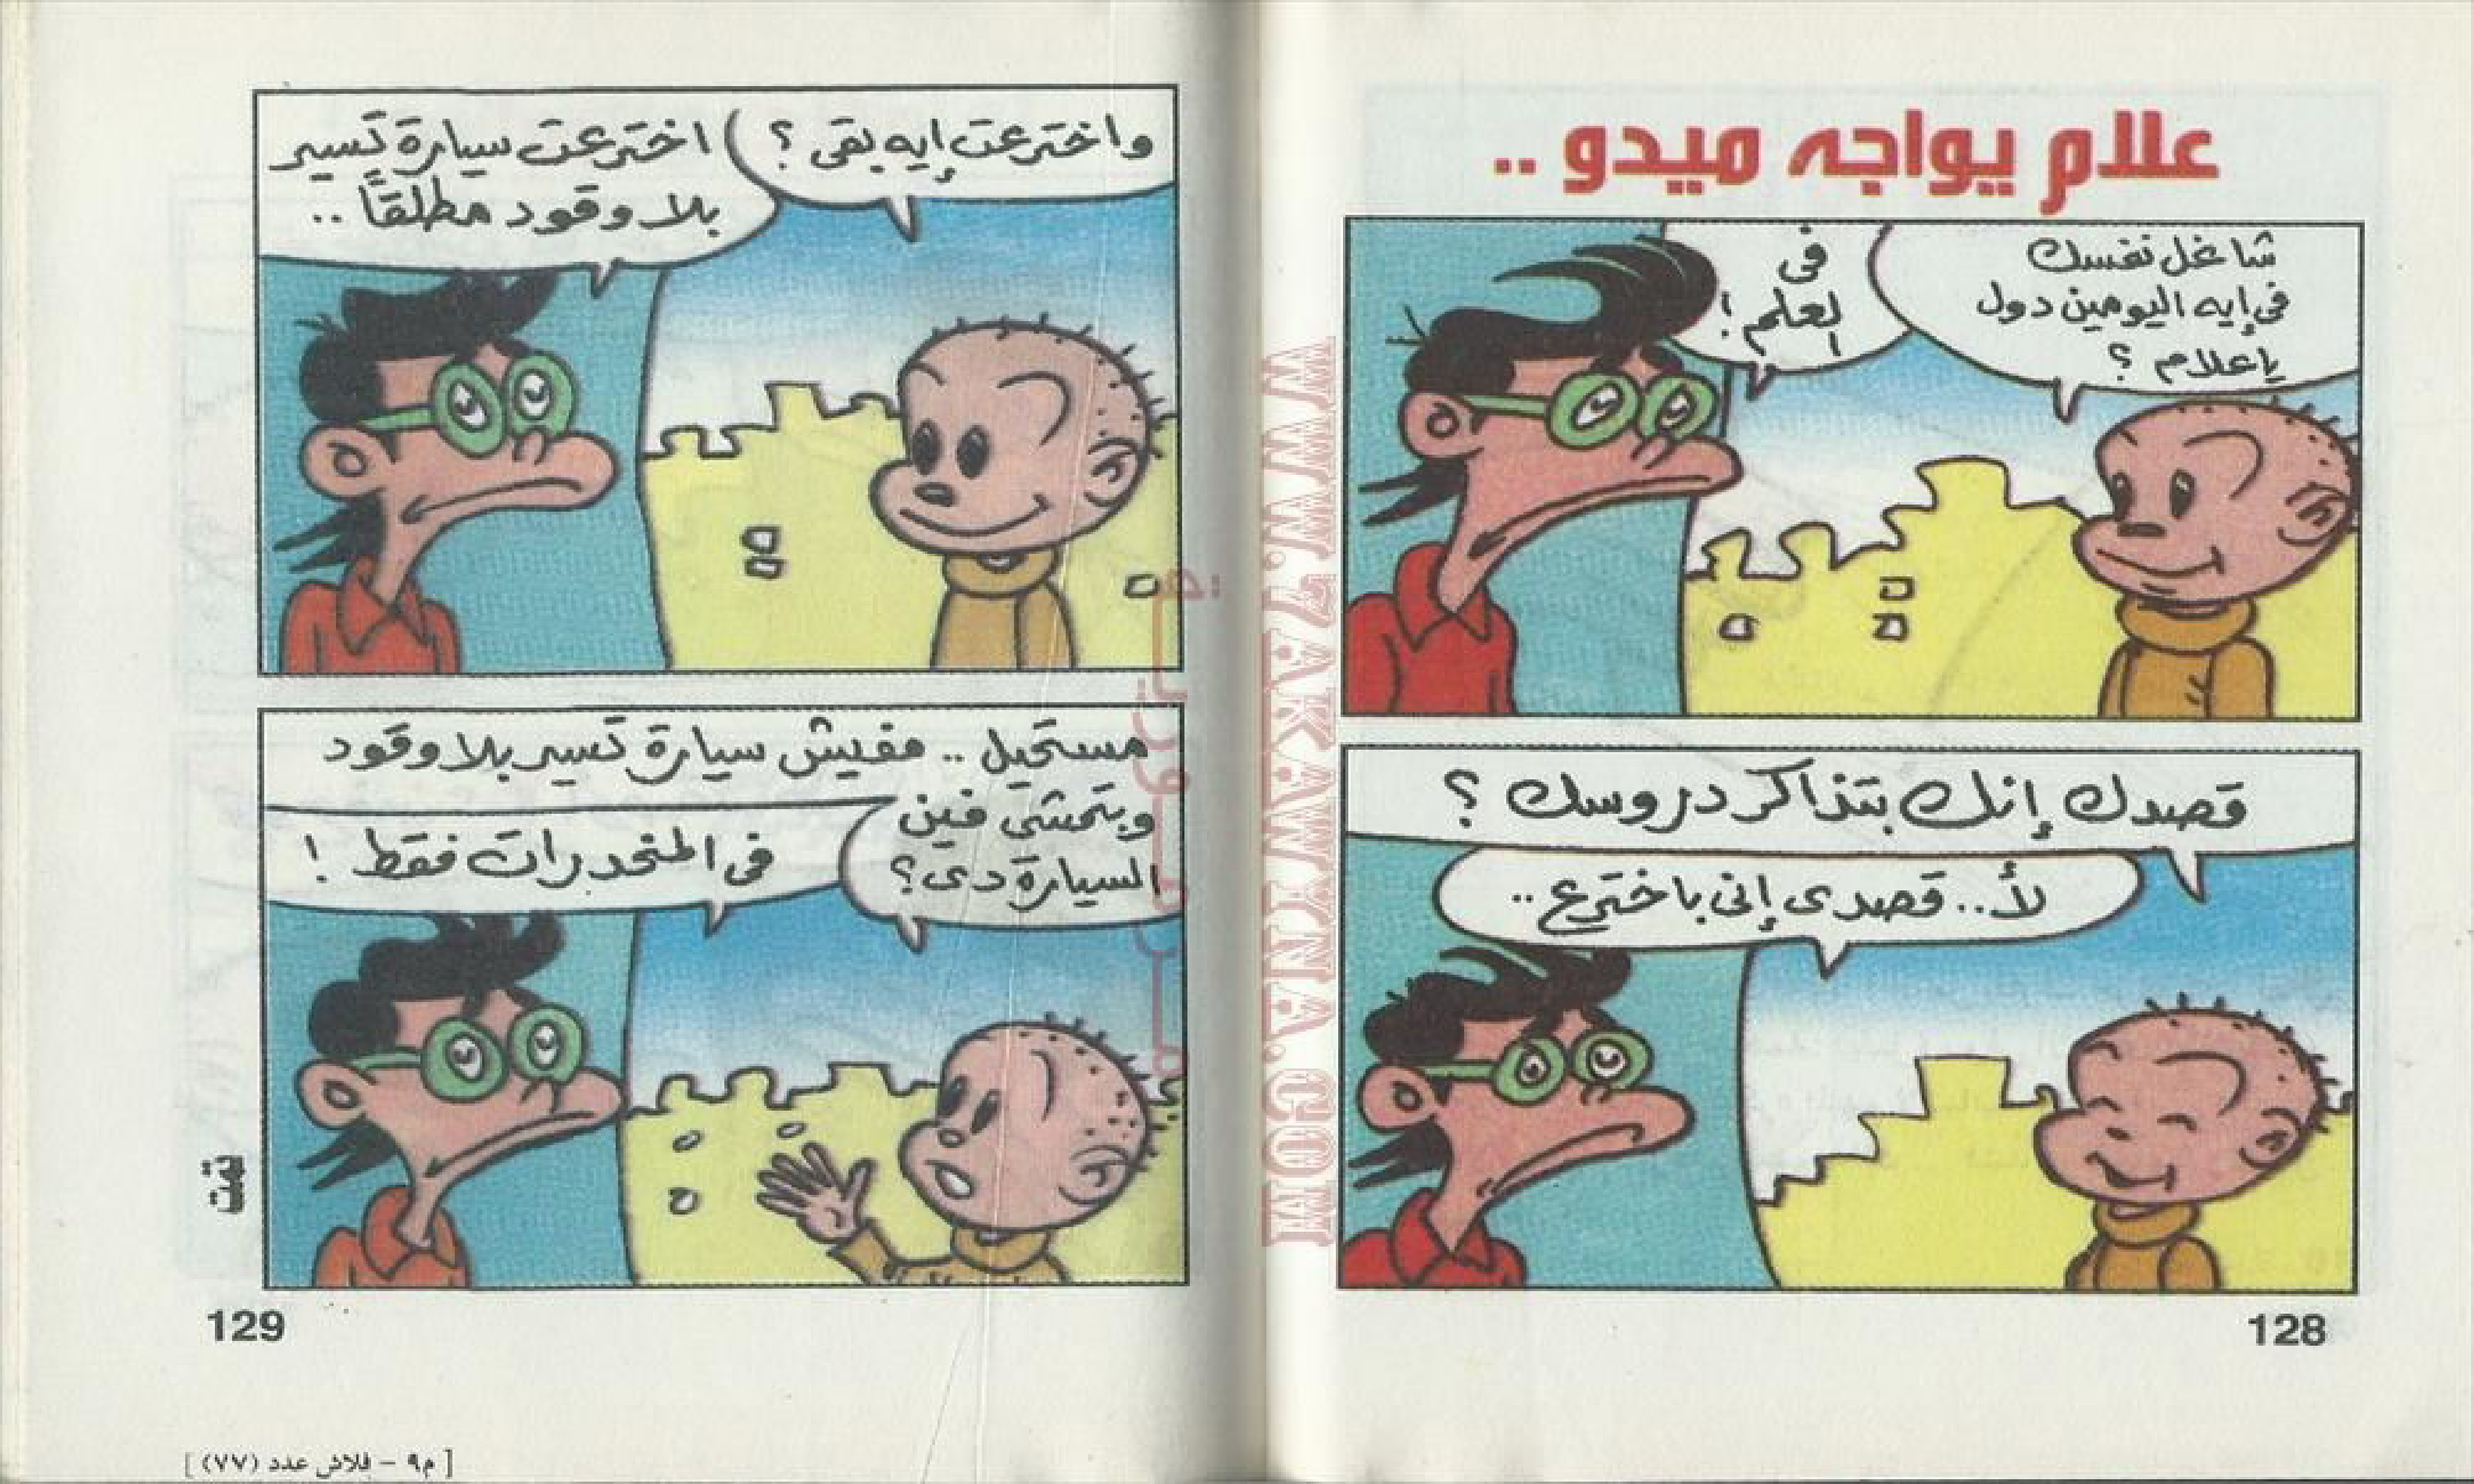 علام يواجه ميدو ..
شاغل نفسك
في إيه اليومين دول
يا علام ؟
في
العلم !
قصدك إنك بتذاكر دروسك ؟
لأ .. قصدى إنى باخترع ..
128
واخترعت إيه بقى ؟
اخترعت سيارة تسير
بلا وقود مطلقاً ..
مستحيل .. مفيش سيارة تسير بلا وقود
وبتمشى فين
السيارة دى ؟
فى المنحدرات فقط !
تمت
129
[ م٩ - فلاش عدد (٧٧) ]
WWW.7AKAWINA.COM